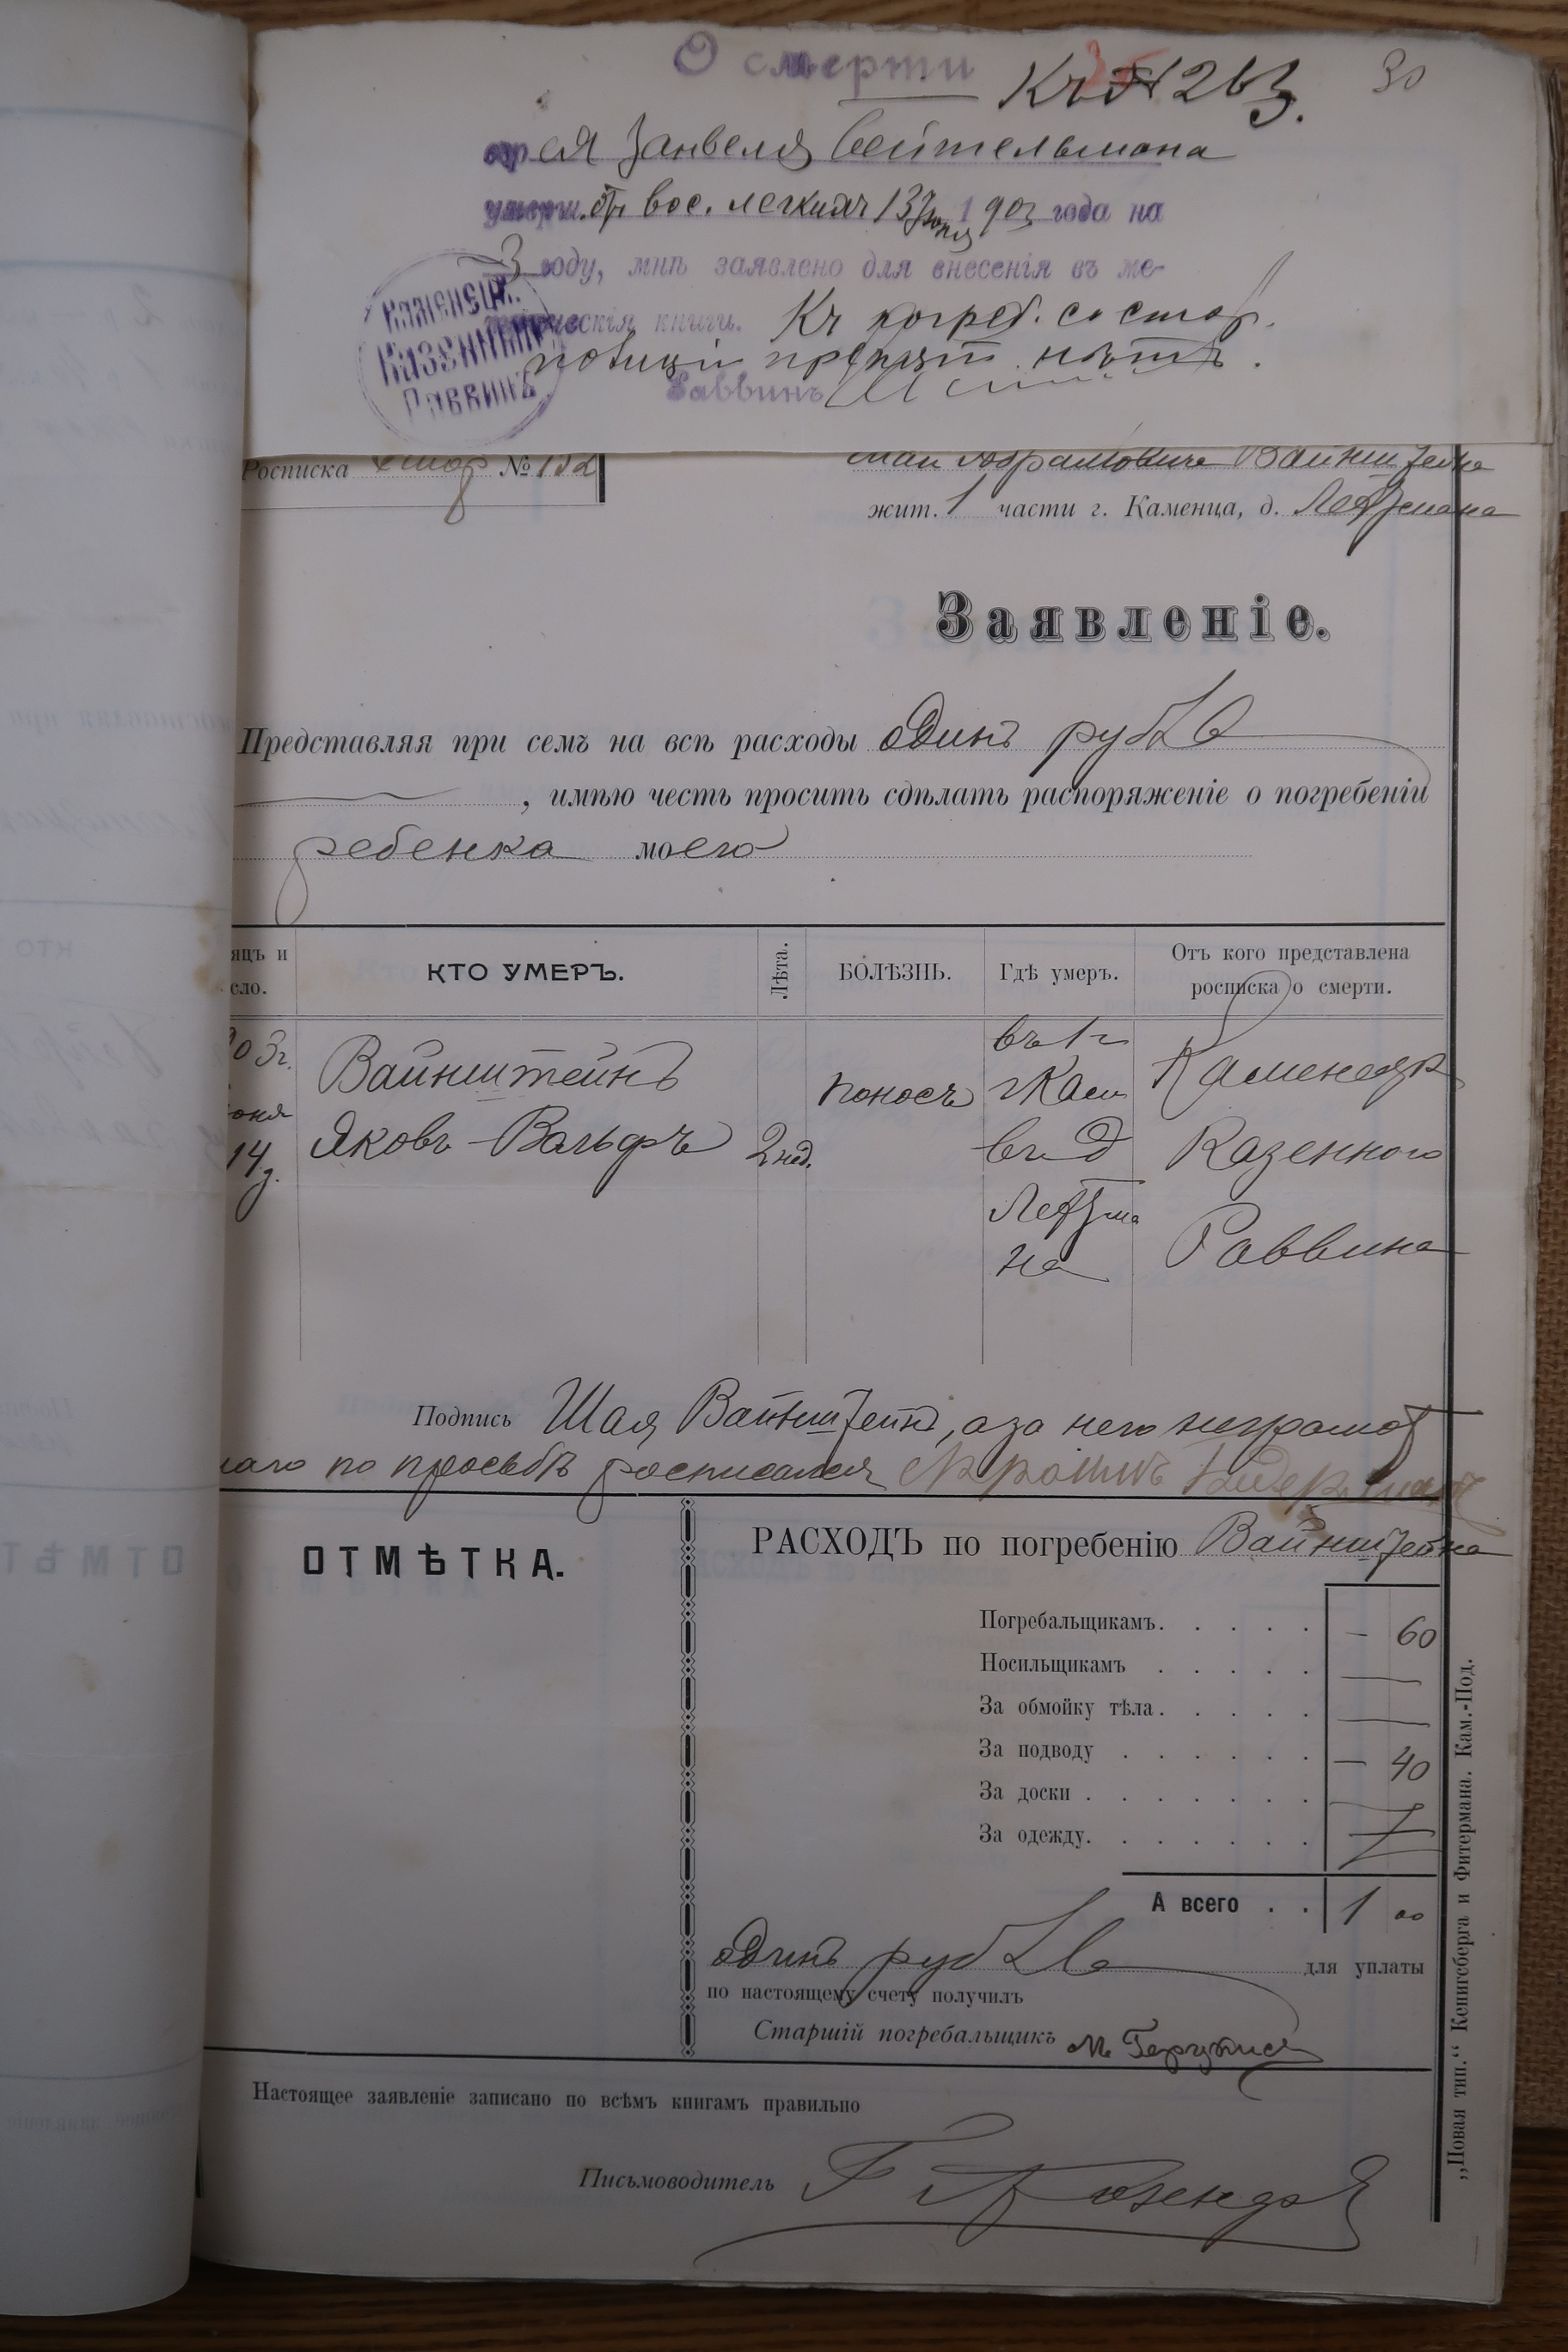 О смерти Къ № 263.
30
евр ея Занвеля Сейтельмана
умерш. отъ вос. легкихъ 13 Іюня 1903 года на
3 году, мнѣ заявлено для внесенія въ ме-
трическія книги. Къ погреб. со стор.
полиціи препят. нѣтъ.
Раввинъ
Каменецк.
Казенный
Раввинъ
Росписка № 132
Абрамовича Вайнштейна
жит. 1 части г. Каменца, д.
Заявленіе.
Представляя при семъ на всѣ расходы одинъ рубль
, имѣю честь просить сдѣлать распоряженіе о погребеніи
ребенка моего
яцъ и
сло.
КТО УМЕРЪ.
Лѣта.
БОЛѢЗНЬ.
Гдѣ умеръ.
Отъ кого представлена
росписка о смерти.
903г.
юня
14д.
Вайнштейнъ
Яковъ-Вольфъ
2 нед.
поносъ
въ 1 ч
г Кам
въ д
на
Каменецк
Казенного
Раввина
Подпись Шая Вайнштейнъ, а за него неграмот
наго по просьбѣ росписался
ОТМѢТКА.
РАСХОДЪ по погребенію Вайнштейна
Погребальщикамъ. . . . . — 60
Носильщикамъ . . . . . —
За обмойку тѣла. . . . . —
За подводу . . . . . . — 40
За доски . . . . . . .
За одежду. . . . . . .
А всего . . 1 00
одинъ рубль для уплаты
по настоящему счету получилъ
Старшій погребальщикъ М.
Настоящее заявленіе записано по всѣмъ книгамъ правильно
Письмоводитель
„Новая тип.“ Кенигсберга и Фитермана. Кам.-Под.